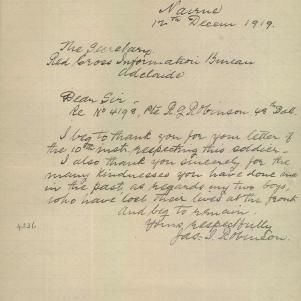 Nairne
12th Decem 1919.
The Secretary
Red Cross Information Bureau
Adelaide
Dear Sir -
Re No 4198, Pte R. J. Robinson. 48th Batt.
I beg to thank you for your letter of
the 10th instr. respecting this soldier -
I also thank you sincerely for the
many kindnesses you have done me
in the past, as regards my two boys,
who have lost their lives at the front
and beg to remain.
Yours respectfully
Jas. I. Robinson.
4236